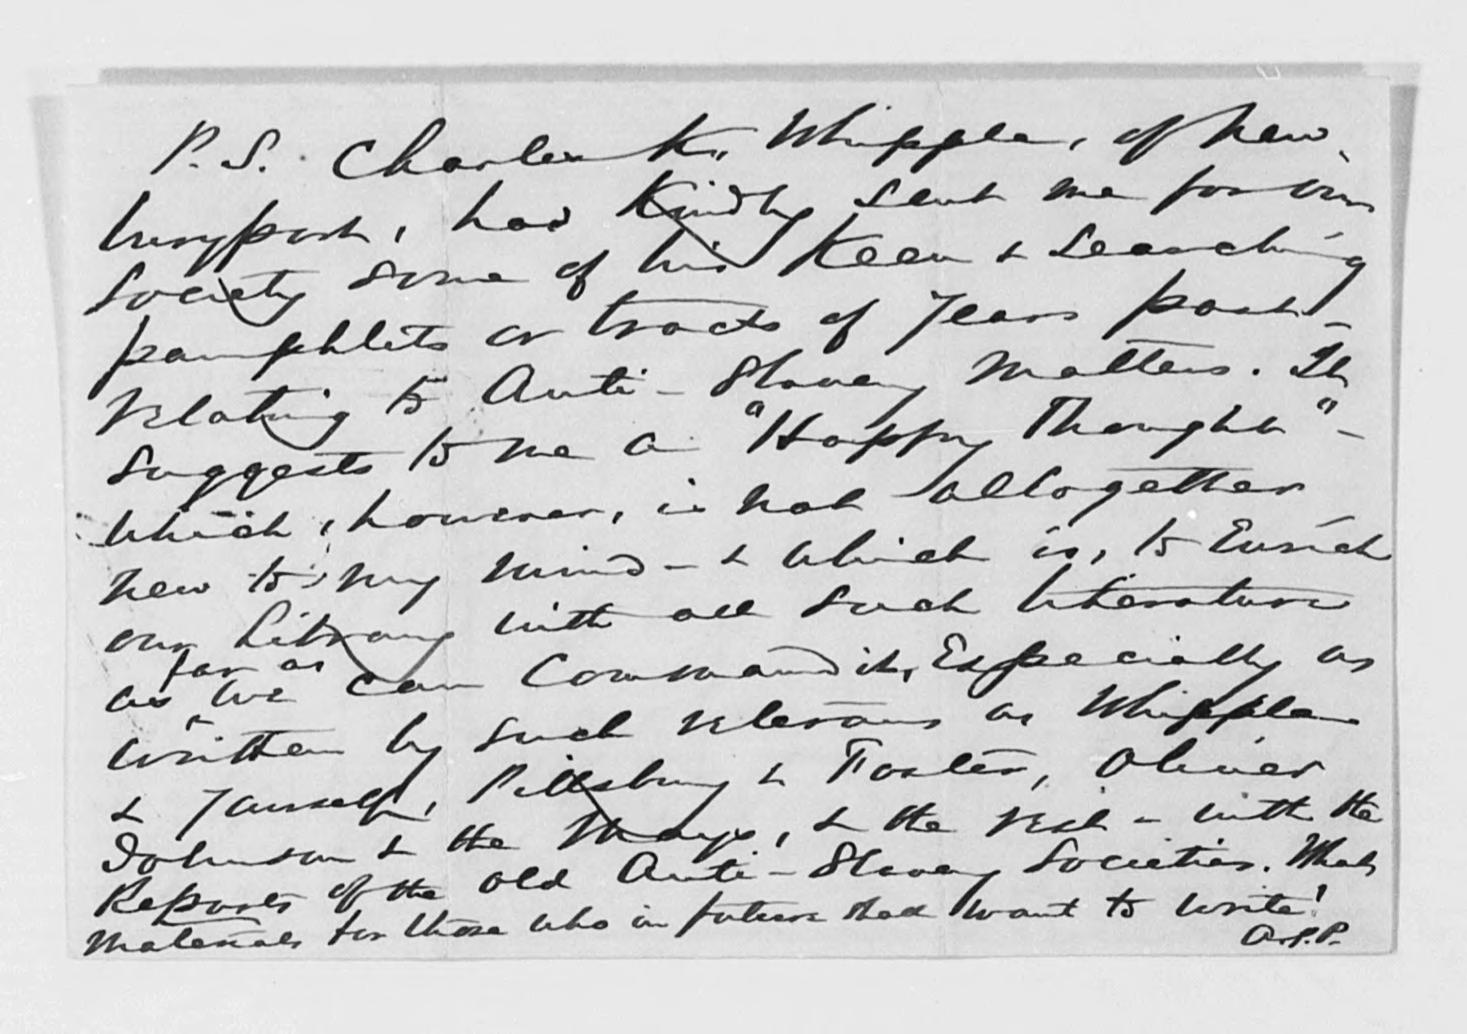 P.S. Charles K. Whipple, of New
buryport, has kindly sent me for our
Society some of his keen & searching
pamphlets or tracts of years past –
relating to Anti-Slavery matters. It
suggests to me a "Happy Thought" –
which, however, is not altogether
new to my mind – & which is, to enrich
our Library with all such literature
as far as we can command it, especially as
written by such veterans as Whipple
& yourself, Pillsbury & Foster, Oliver
Johnson & the Mays, & the rest – with the
Reports of the old Anti-Slavery Societies. What
materials for those who in future shall want to write!
A.P.P.